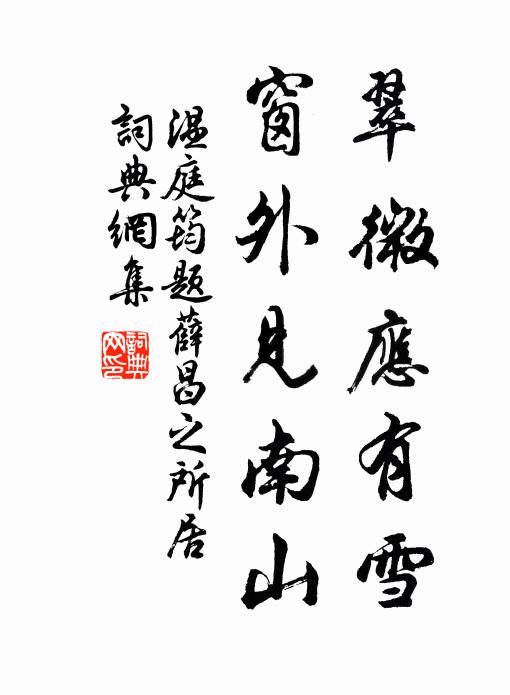 翠微應有雪
窗外見南山
温庭筠題薛昌之所居
詞典網集
詞典網印